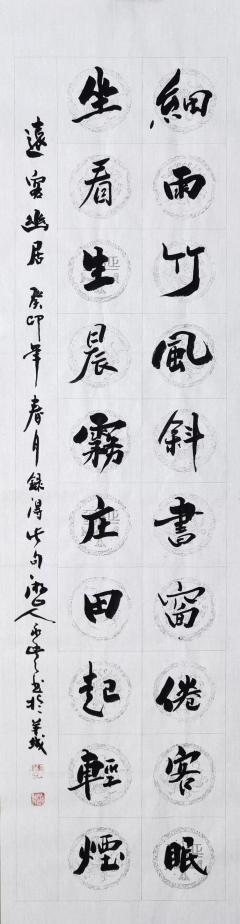 細雨竹風斜書窗倦客眠
坐看生晨霧庄田起輕煙
遠客幽居 癸卯年春月録得此句